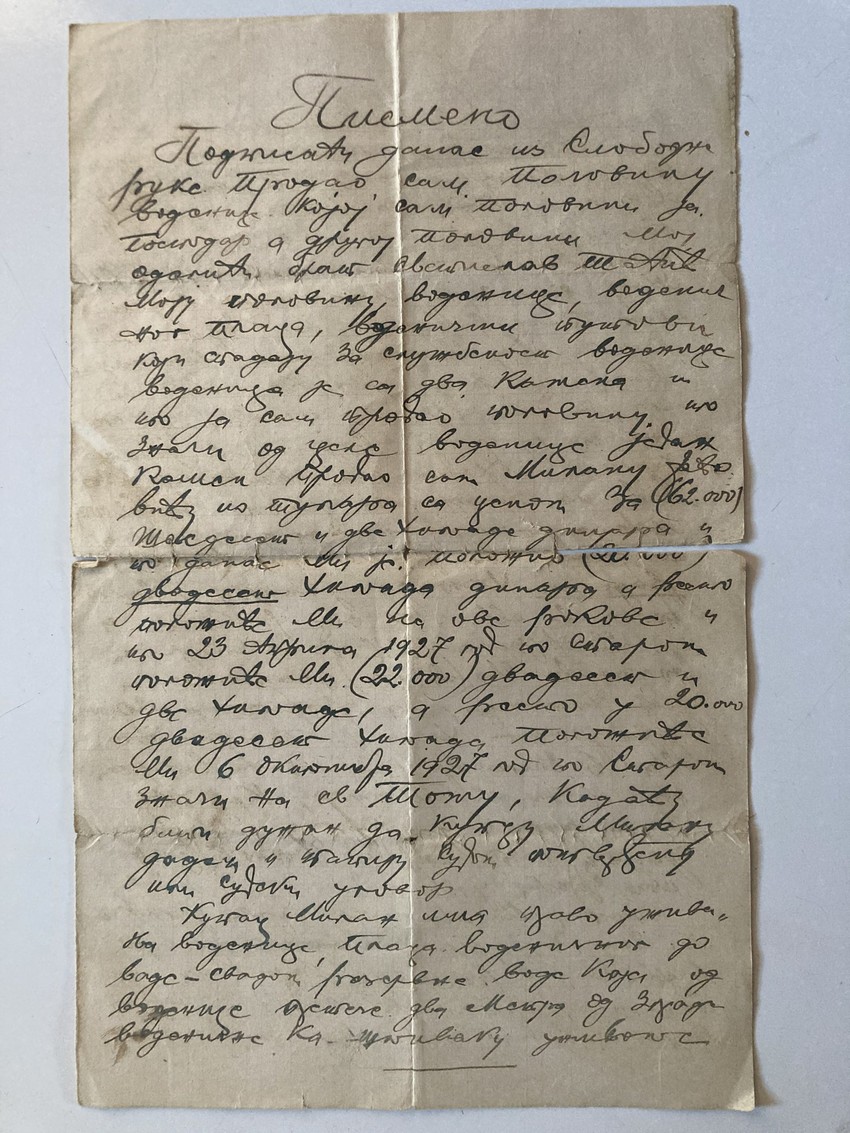 Писмено
Подписати данас из Слободне
руке Продао сам Половину
воденице којој сам половини ја
господар а другој половини мој
оделити брат Светислав
Моју половину воденице, воденич
ног плаца, воденични путови
који спадају за службеност воденице
воденица је са два Камена и
то ја сам продао половину то
значи од целе воденице један
Камен Продао сам Милану
из са целом За (62.000)
Шесдесет и две хиљаде динара и
то данас ми је положио (20.000)
двадесет хиљада динара а
положиће Ми на ове рокове и
то 23 Априла 1927 год по Старом
положиће Ми (22.000) двадесет и
две хиљаде, а у 20.000
двадесет хиљада Положиће
Ми 6 Октомбра 1927 год по Старом
значи на св Тому, Кадаћу
бити дужан да Купцу Милану
дадем и
или судски уговор
Купац Милан има право ужива-
на воденице, плаца воденичног до
ваде – свадом, резервне воде Која од
воденице два Метра од Зграде
воденичне Ка